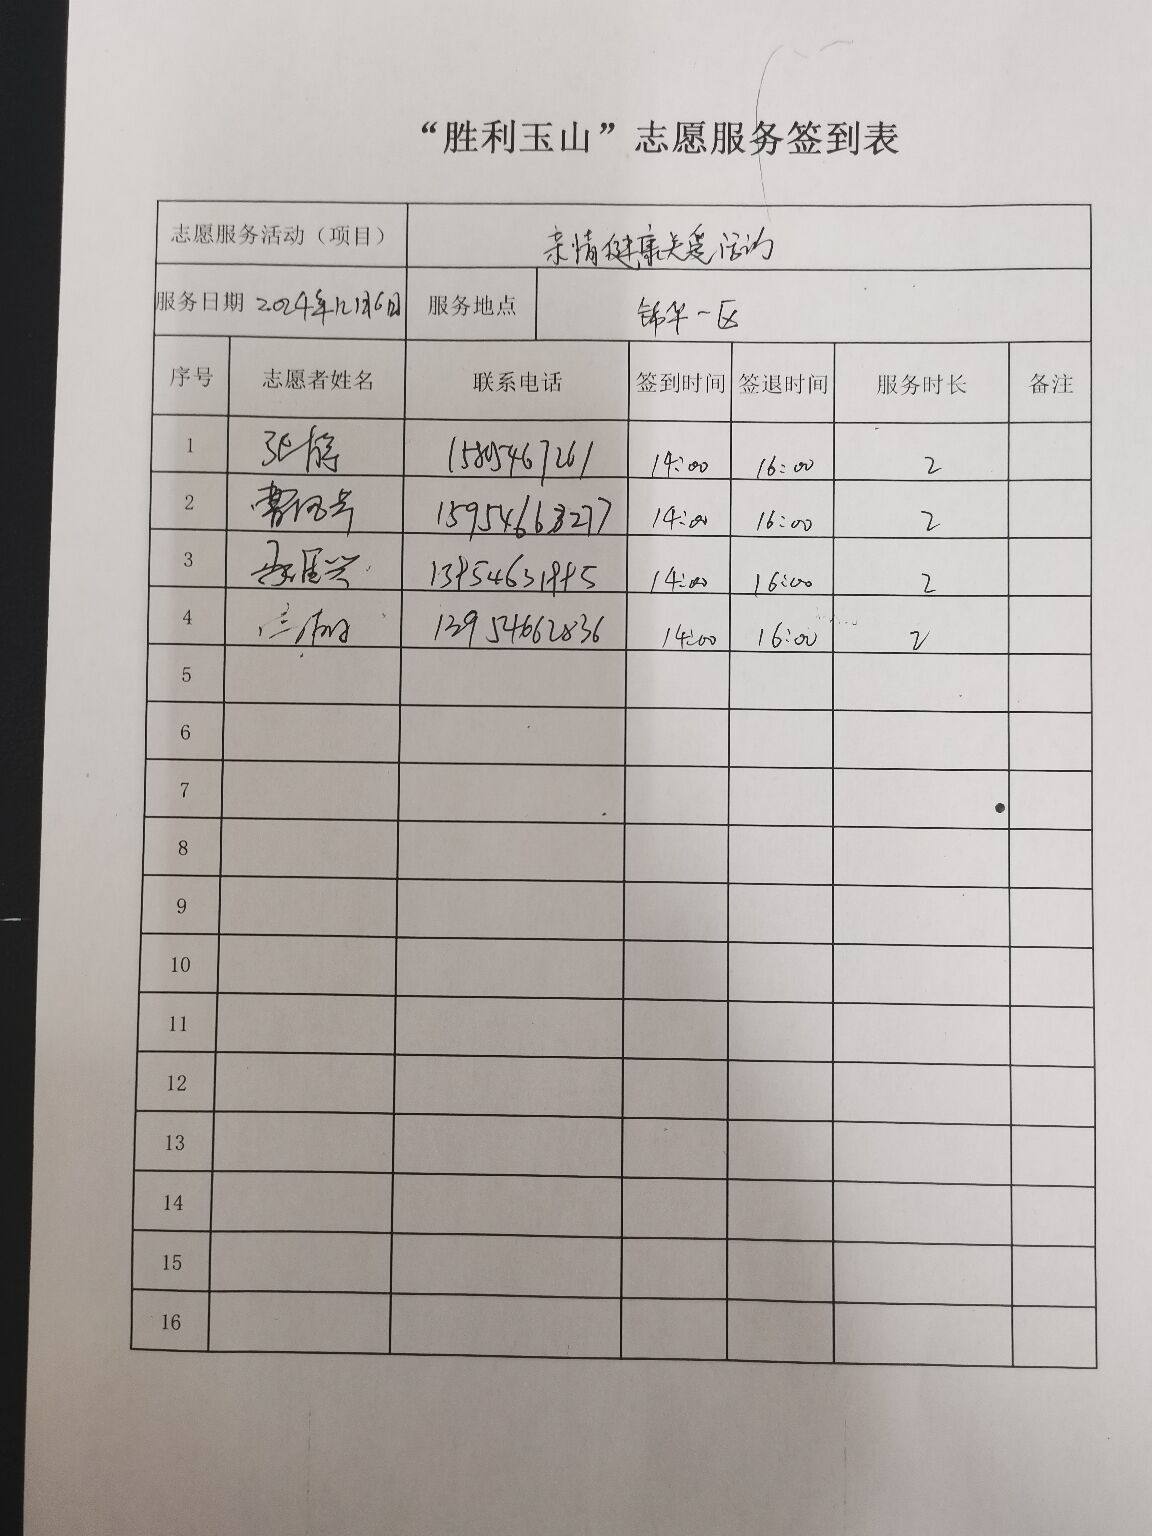 “胜利玉山”志愿服务签到表
志愿服务活动（项目） 亲情健康关爱活动
服务日期 2024年12月6日 服务地点 锦华一区
序号 志愿者姓名 联系电话 签到时间 签退时间 服务时长 备注
1 张 14:00 16:00 2
2 曹 15954663277 14:00 16:00 2
3 14:00 16:00 2
4 13954662836 14:00 16:00 2
5
6
7
8
9
10
11
12
13
14
15
16